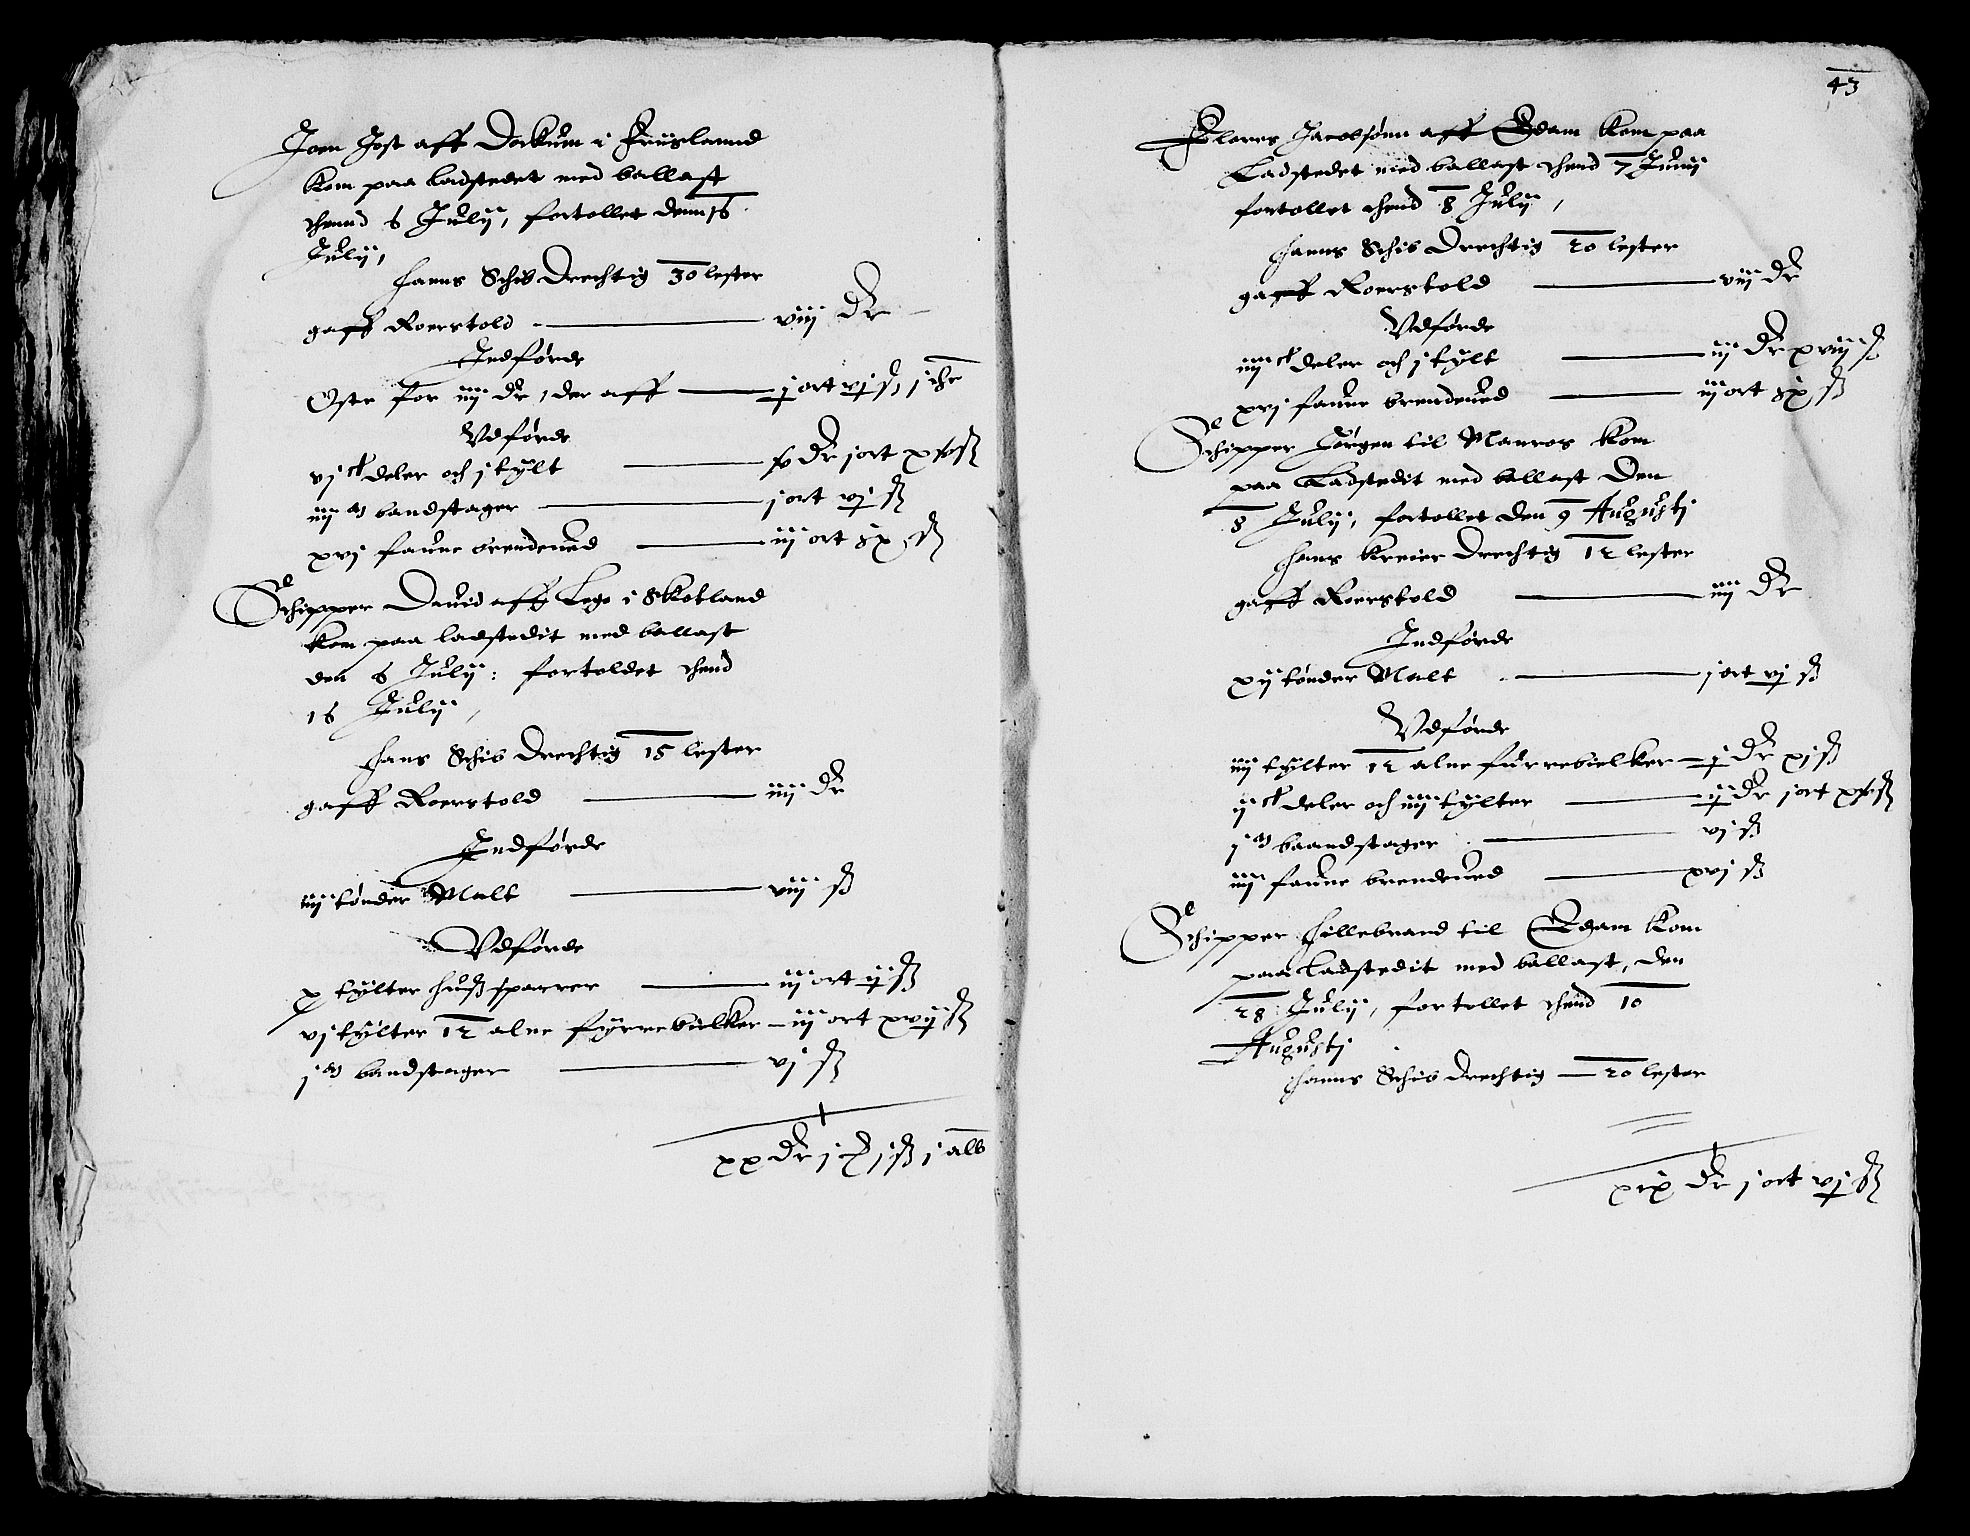 Joen Jost aff Dockum i Friislannd
kom paa ladstedet med ballast
thennd 6 Julij, fortollet denn 16
Julij,
hanns Schib Drechtig 30 lester
gaff Roerstold viij Dr
Indførde
Oste for iiij dr, der aff j ort vj ß j
Vdførde
vj ck deler och j tylt Dr j ort ß
iiij m bandstager j ort vj ß
xvj faune brendeued iij ort ß
Schipper Dauid aff i Skotland
kom paa ladstedit med ballast
den 6 Julij: fortoldet thend
16 Julij,
hans Schib drechtig 15 lester
gaff Roerstold iiij Dr
Indførde
iiij tønder Malt viij ß
Vdførde
x tylter huß sparrer iij ort ij ß
vj tylter 12 alne fyrrebielker iij ort xvij ß
j m bandstager vj ß
xx Dr j j ß j alb
43
Flores Jacobsønn aff Edam kom paa
Ladstedet med ballast thend 7 Junij
fortollet thend 8 Julij,
hanns Schib Drechtig 20 lester
gaff Roerstold viij Dr
Vdførde
iiij ck deler och j tylt iij Dr xviij ß
xvj faune brendeued iij ort ß
Schipper Jørgen til Manros kom
paa Ladstedit med ballast Den
8 Julij, fortollet den 9 Augustj
hans kreier Drechtig 12 lester
gaff Roerstold iiij Dr
Indførde
xij tønder Malt j ort vj ß
Vdførde
iiij tylter 12 alne furrebielker j Dr xj ß
ij ck deler och iiij tylter ij Dr j ort ß
j m baandstager vj ß
iiij faune brendeued xvj ß
Schipper Hillebrand til Edam kom
paa ladstedit med ballast, den
28 Julij, fortollet thend 10
Augustj
hanns Schib drechtig 20 lester
xix Dr j ort vj ß